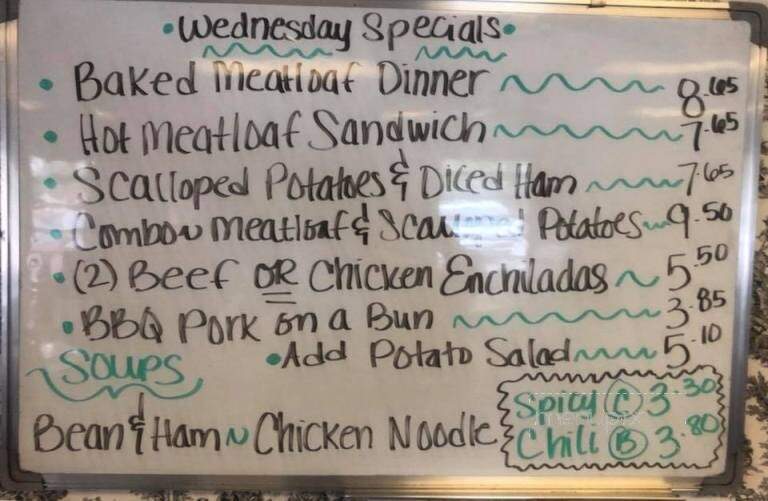 •Wednesday Specials•
• Baked Meatloaf Dinner 8.65
• Hot Meatloaf Sandwich 7.65
• Scalloped Potatoes & Diced Ham 7.65
• Combo~ Meatloaf & Scalloped Potatoes~ 9.50
• (2) Beef OR Chicken Enchiladas ~ 5.50
• BBQ Pork on a Bun 3.85
• Add Potato Salad 5.10
Soups
Bean & Ham ~ Chicken Noodle
Spicy (C) 3.30
Chili (B) 3.80